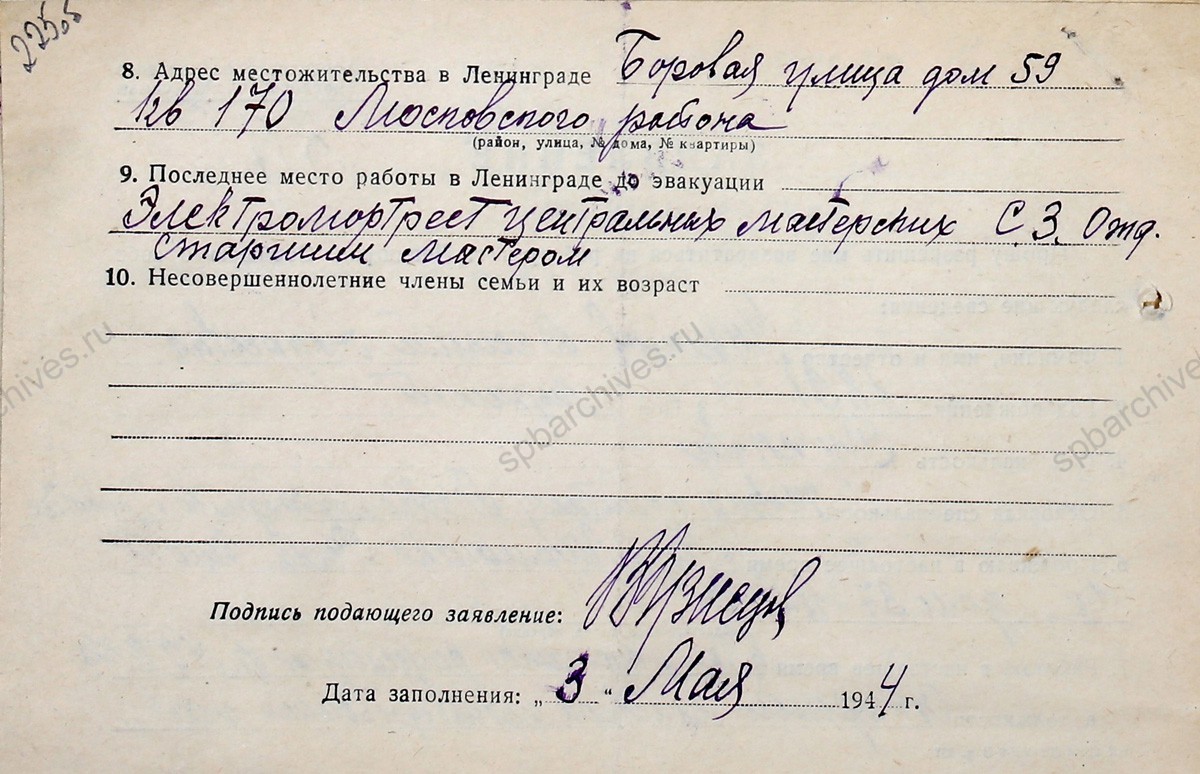 225об
8. Адрес местожительства в Ленинграде Боровая улица дом 59
кв 170 Московского района
(район, улица, № дома, № квартиры)
9. Последнее место работы в Ленинграде до эвакуации
Электромортрест центральных мастерских С.З. Отд.
старшим мастером
10. Несовершеннолетние члены семьи и их возраст
spbarchives.ru
spbarchives.ru
spbarchives.ru
Подпись подающего заявление:
Дата заполнения: „3“ Мая 1944 г.